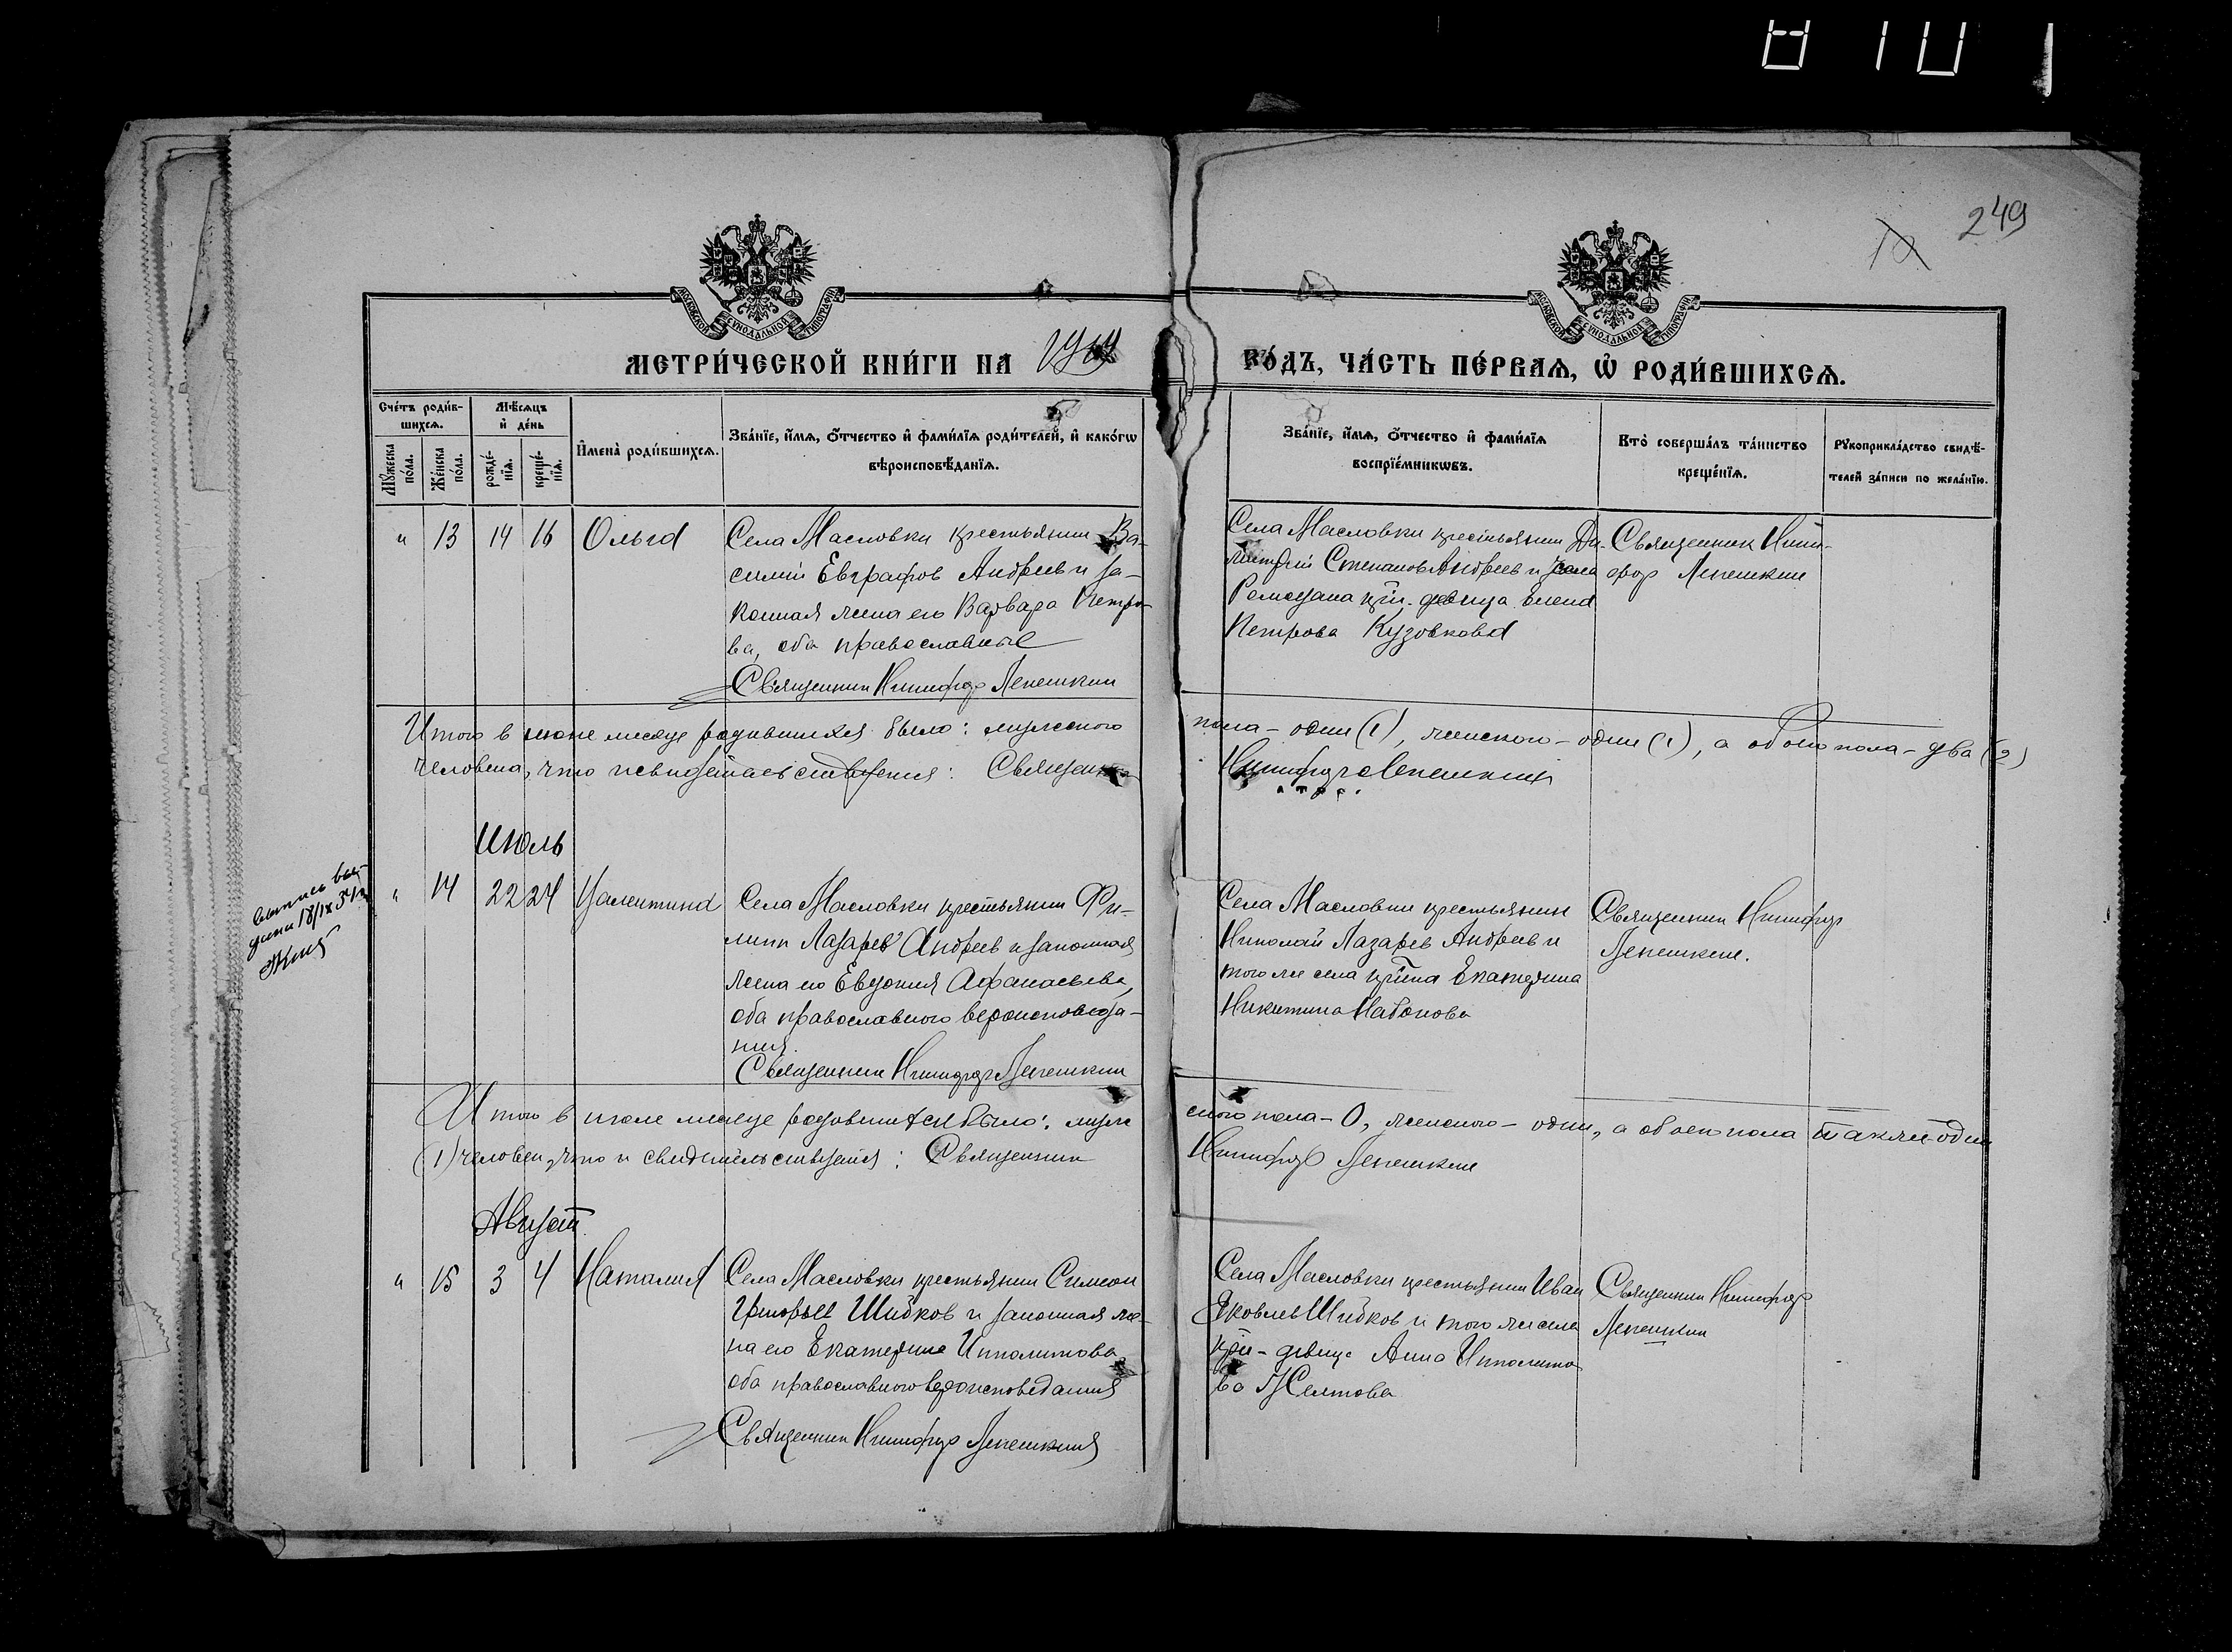 249
МОСКОВСКОЙ СѴНОДАЛЬНОЙ ТИПОГРАФІИ
МОСКОВСКОЙ СѴНОДАЛЬНОЙ ТИПОГРАФІИ
МЕТРИ́ЧЕСКОЙ КНИ́ГИ НА
ГО́ДЪ, ЧА́СТЬ ПЕ́РВАѦ, Ѡ҆ РОДИ́ВШИХСѦ.
Сче́тъ роди́в-
шихсѧ.
Мѣ́сѧцъ
и҆ де́нь
Мꙋ́жеска
по́ла.
Же́нска
по́ла.
рожде́-
нїѧ.
креще́-
нїѧ.
И҆мена̀ роди́вшихсѧ.
Зва́нїе, и҆́мѧ, ѻ҆́тчество и҆ фами́лїѧ роди́телей, и҆ како́гѡ
вѣроисповѣ́данїѧ.
Зва́нїе, и҆́мѧ, ѻ҆́тчество и҆ фами́лїѧ
воспрїе́мникѡвъ.
Кто̀ соверша́лъ та́инство
креще́нїѧ.
Рꙋкоприкла́дство свидѣ́-
телей за́писи по жела́нїю.
" 13 14 16 Ольга
Села Масловки крестьянин Ва-
силий Евграфов Андреев и за-
конная жена его Варвара Петро-
ва, оба православные
Священник Никифор Лепешкин
Села Масловки крестьянин Ди-
митрий Степанов Андреев и села
девица Елена
Петрова Кузовкова
Священник Ники-
фор Лепешкин
Итого в июне месяце родившихся было: мужеского
пола - один (1), женского - один (1), а обоего пола - два (2)
человека, что и свидетельствуем: Священник
Никифор Лепешкин
Июль
" 14 22 24 Валентина
Села Масловки крестьянин Фи-
липп Лазарев Андреев и законная
жена его Евдокия Афанасьева,
оба православного вероисповеда-
ния.
Священник Никифор Лепешкин
Села Масловки крестьянин
Николай Лазарев Андреев и
того же села Екатерина
Никитина
Священник Никифор
Лепешкин.
Итого в июле месяце родившихся было: муже
ского пола - 0, женского - один, а обоего пола также один
(1) человек, что и свидетельствуем: Священник
Никифор Лепешкин
Август
" 15 3 4 Наталия
Села Масловки крестьянин Симеон
Григорьев Шибков и законная же-
на его Екатерина Ипполитова
оба православного вероисповедания
Священник Никифор Лепешкин
Села Масловки крестьянин Иван
Яковлев Шибков и того же села
девица Анна Ипполито-
ва Желтова
Священник Никифор
Лепешкин